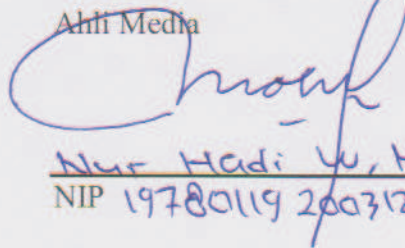 Ahli Media
Nur Hadi W,
NIP 19780119 200312